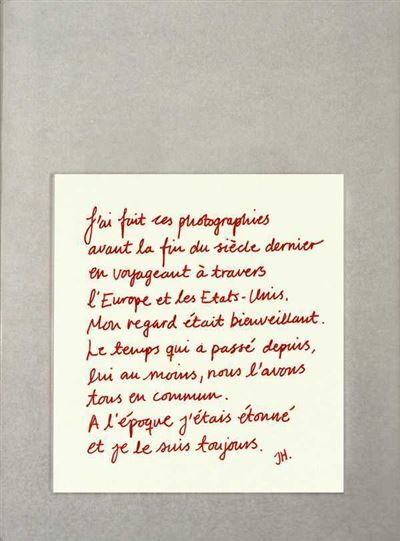 J'ai fait ces photographies
avant la fin du siècle dernier
en voyageant à travers
l'Europe et les Etats-Unis.
Mon regard était bienveillant.
Le temps qui a passé depuis,
lui au moins, nous l'avons
tous en commun.
A l'époque j'étais étonné
et je le suis toujours.
JH.